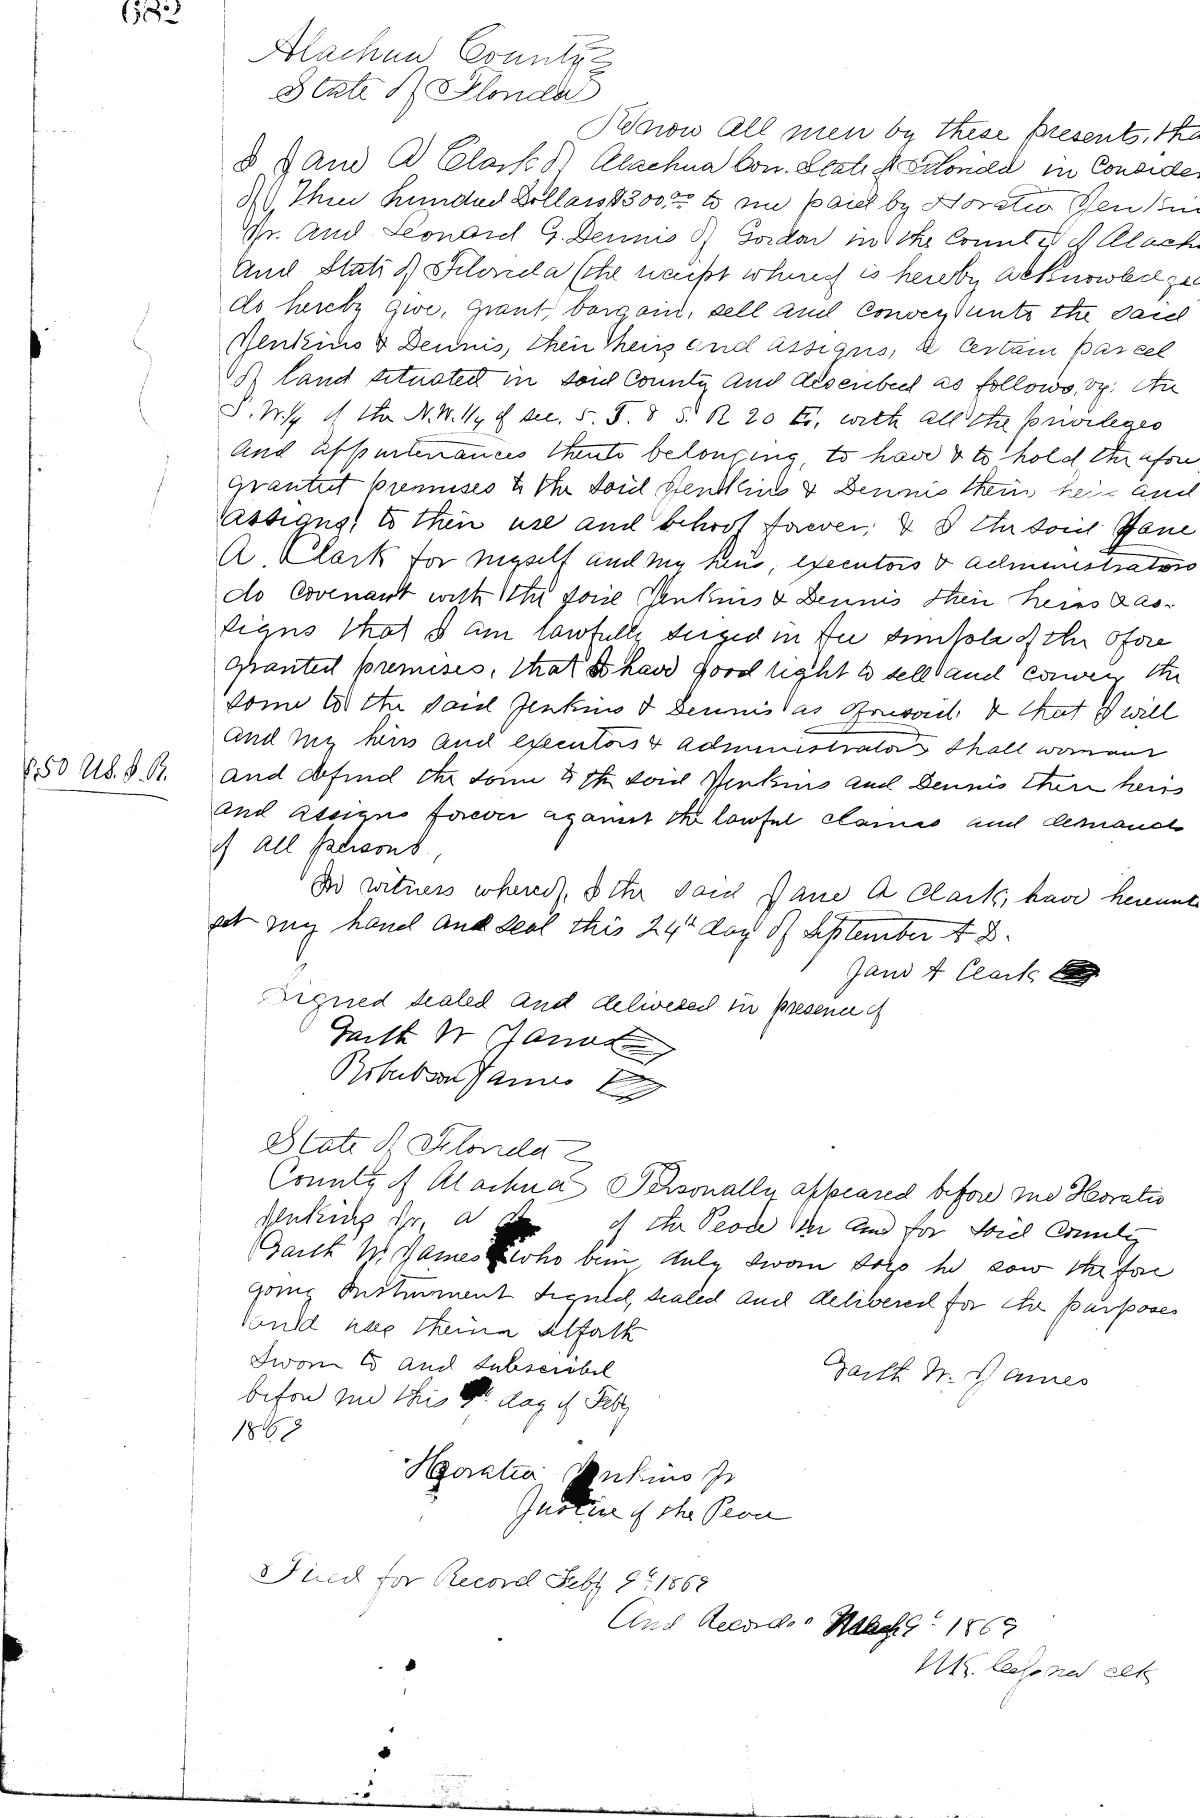 682
Alachua County
State of Florida
Know all men by these presents, tha
I Jane A Clark of Alachua Con. State of Florida in Consider
of Three hundred Dollars $300.00 to me paid by Horatio Jenkin
Jr. and Leonard G. Dennis of Gordon in the County of Alach
and State of Florida (the receipt whereof is hereby acknowledged
do hereby give, grant, bargain, sell and convey unto the said
Jenkins & Dennis, their heirs and assigns, a certain parcel
of land situated in said County and described as follows, vz: the
S.W.1/4 of the N.W.1/4 of sec. 5. T. 8 S. R 20 E., with all the privileges
and appurtenances thereto belonging, to have & to hold the afore
granted premises to the said Jenkins & Dennis their heirs and
assigns, to their use and behoof forever; & I the said Jane
A. Clark for myself and my heirs, executors & administrators
do covenant with the said Jenkins & Dennis their heirs & as-
signs that I am lawfully seized in fee simple of the afore
granted premises, that I have good right to sell and convey the
same to the said Jenkins & Dennis as aforesaid. & that I will
and my heirs and executors & administrators shall warrant
$.50 U.S.I.R.
and defend the same to the said Jenkins and Dennis their heirs
and assigns forever against the lawful claims and demands
of all persons,
In witness whereof, I the said Jane A Clark, have hereunto
set my hand and seal this 24th day of September A D.
Jane A Clark
Signed sealed and delivered in presence of
Garth W James
Robertson James
State of Florida
County of Alachua Personally appeared before me Horatio
Jenkins Jr, a of the Peace in and for said County
Garth W. James who being duly sworn says he saw the fore
going Instrument signed, sealed and delivered for the purposes
and uses therein setforth
Sworn to and subscribed
Garth W. James
before me this day of Feby
1869
Horatio Jenkins Jr
Justice of the Peace
Filed for Record Feby 9th 1869
And Record 9th 1869
clk